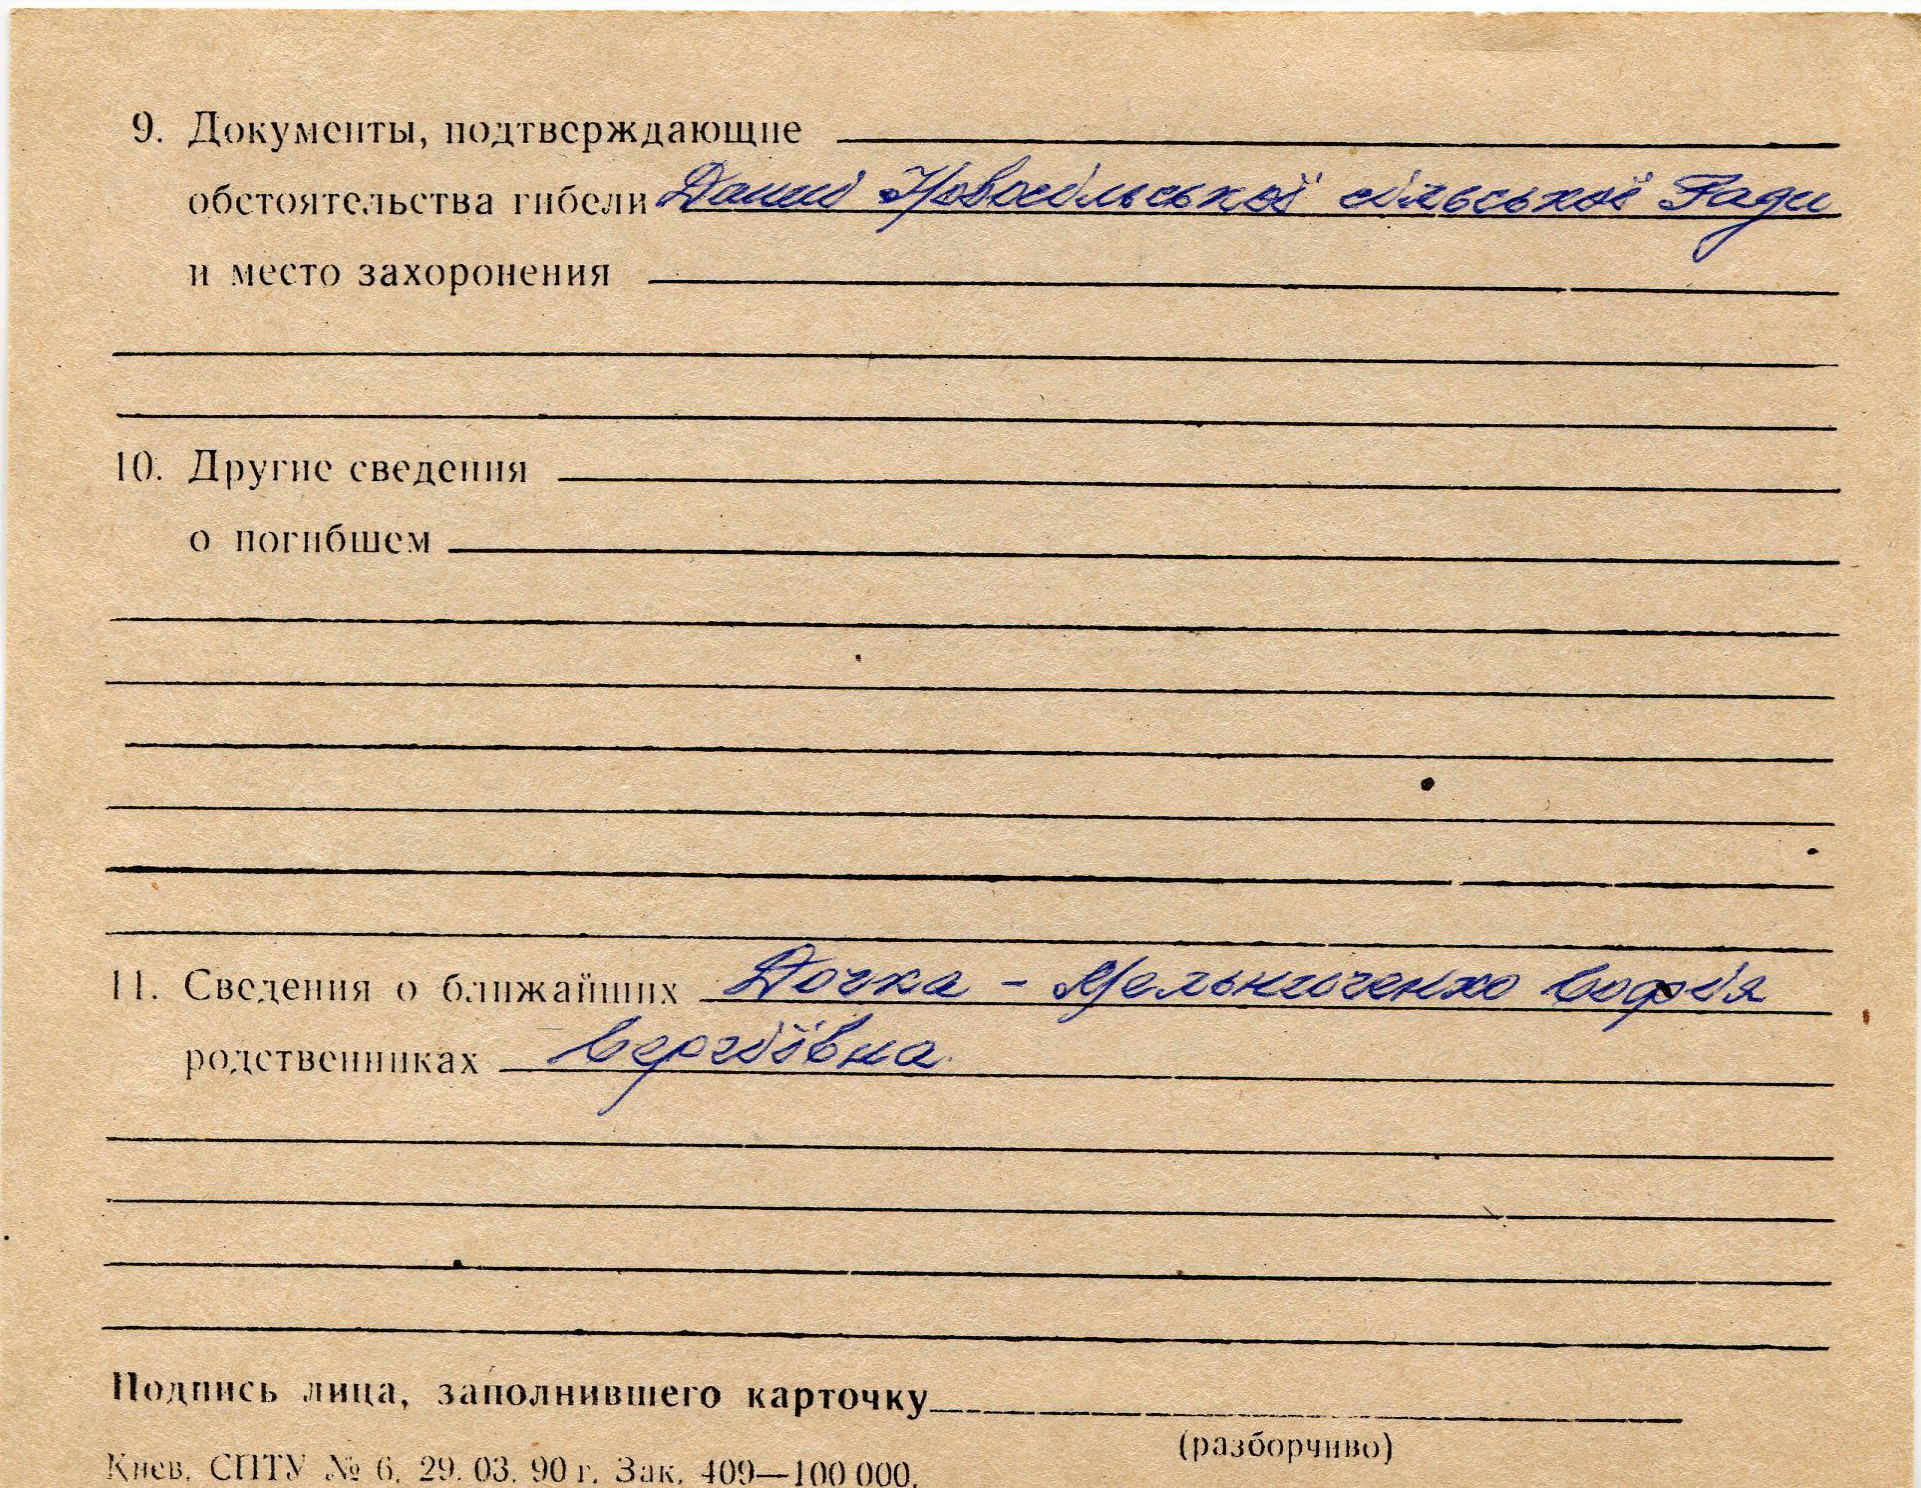 9. Документы, подтверждающие
обстоятельства гибели Данні Новосільської сільської Ради
и место захоронения
10. Другие сведения
о погибшем
11. Сведения о ближайших Дочка - Мельниченко Софія
родственниках Сергіївна
Подпись лица, заполнившего карточку
(разборчиво)
Киев. СПТУ № 6. 29. 03. 90 г. Зак. 409—100 000.